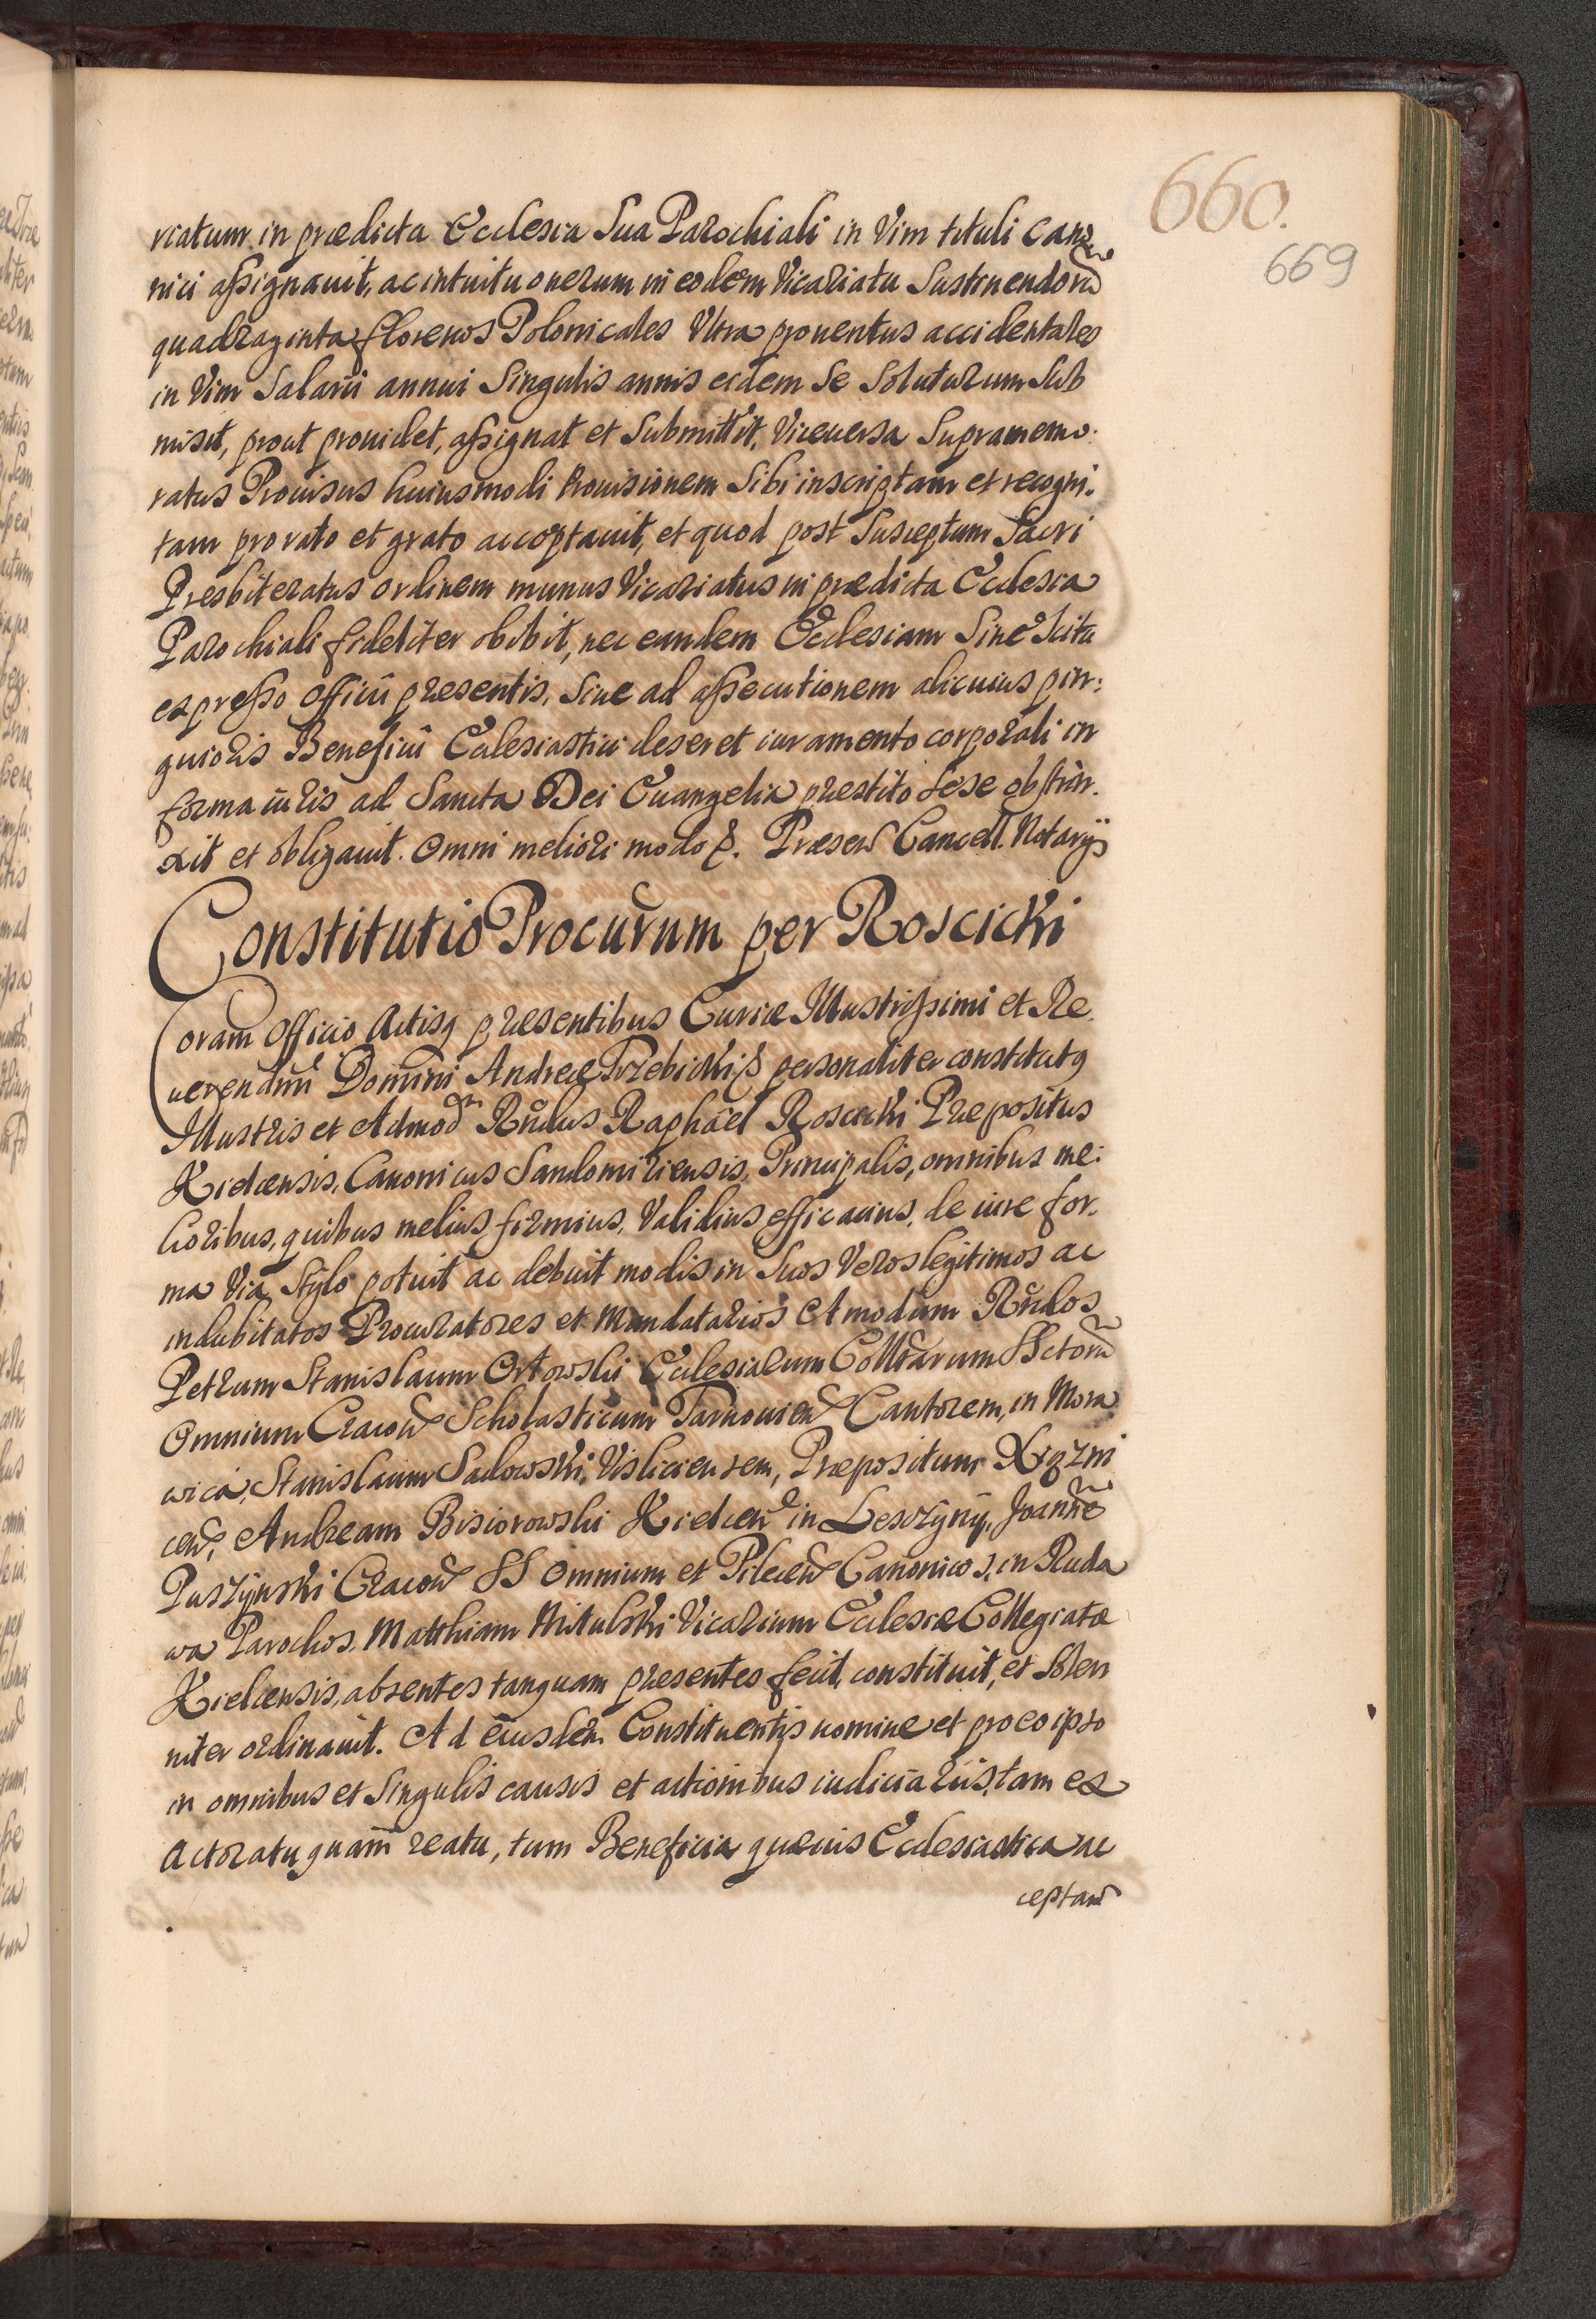 660.
669
riatum in prædicta Ecclesia Sua Parochiali in Vim tituli Cano
nici assignauit, ac intuitu onerum in eodem Vicariatu Sustinendorũ
quadraginta florenos Polonicales Vltra prouentus accidentales
in Vim Salarii annui Singulis annis eidem Se Soluturum Sub
misit, prout prouidet, assignat et Submittit. Viceuersa Supramemo:
ratus Prouisus huiusmodi Prouisionem Sibi inscriptam et recogni:
tam pro rato et grato acceptauit, et quod post Susceptum Sacri
Presbiteratus ordinem munus Vicariatus in prædicta Ecclesia
Parochiali fideliter obibit, nec eandem Ecclesiam Sine Scitu
expresso officii præsentis, Siue ad assecutionem alicuius pin:
guioris Beneficii Ecclesiastici deseret iuramento corporali in
forma iuris ad Sancta Dei Euangelia præstito sese obstrin.
xit et obligauit. Omni meliori modo &. Præsen Cancell. Notarijs
Constitutio Procurum per Roscicki
Coram Officio Actisq præsentibus Curiæ Illustrissimi et Re.
uerendmi Domini Andreæ Trzebicki & personaliter constitutq
Illustris et Admod Rndus Raphael Roscicki Præpositus
Kielcensis, Canonicus Sandomiriensis, Principalis, omnibus me:
lioribus, quibus melius, firmius, Validius, efficacius, de iure for.
ma Via Stylo potuit ac debuit modis in Suos Veros legitimos ac
indubitatos Procuratores et Mandatarios Amodum Rndos
Petrum Stanislaum Orłowski Ecclesiarum Colltarum SSctorũ
Omnium Cracou Scholasticum Tarnouien Cantorem, in Mora
wica, Stanislaum Sadowski, Visliciensem, Præpositum Xiązni
cen, Andream Bisiorowski Kielcen in Leszczyny, Joanne
Puszynski Cracou SS Omnium et Pilecen Canonicos, in Ruda
wa Parochos, Matthiam Mitulski Vicarium Ecclesiæ Collegiatæ
Kielcensis, absentes tanquam præsentes fecit, constituit, et Solen
niter ordinauit. Ad eiusdem Constituentis nomine et pro eo ipso
in omnibus et Singulis causis et actionibus iudiciariis, tam ex
Actoratu quam reatu, tum Beneficia quæuis Ecclesiastica ac
ceptan